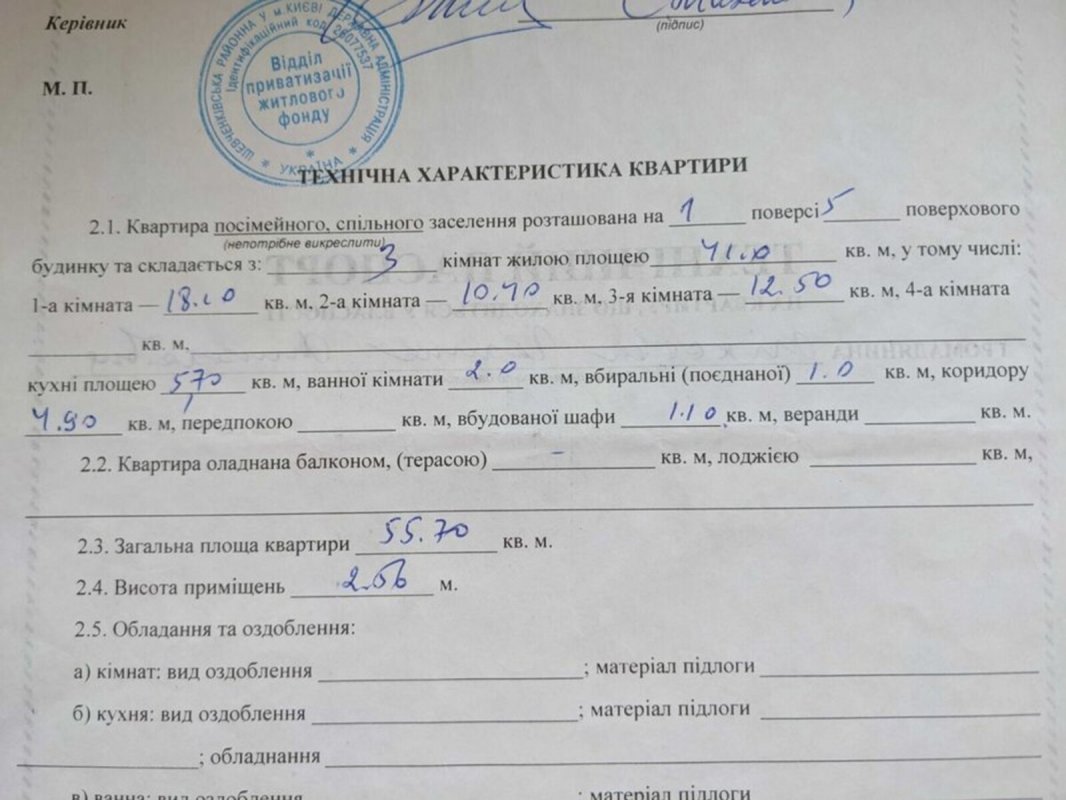 Керівник
(підпис)
М. П.
ШЕВЧЕНКІВСЬКА РАЙОННА У м.КИЄВІ ДЕРЖАВНА АДМІНІСТРАЦІЯ * УКРАЇНА *
Ідентифікаційний код 26077537
Відділ
приватизації
житлового
фонду
*
ТЕХНІЧНА ХАРАКТЕРИСТИКА КВАРТИРИ
2.1. Квартира посімейного, спільного заселення розташована на 1 поверсі 5 поверхового
(непотрібне викреслити)
будинку та складається з: 3 кімнат жилою площею 41.0 кв. м, у тому числі:
1-а кімната — 18.10 кв. м, 2-а кімната — 10.40 кв. м, 3-я кімната — 12.50 кв. м, 4-а кімната
кв. м.
кухні площею 5,70 кв. м, ванної кімнати 2.0 кв. м, вбиральні (поєднаної) 1.0 кв. м, коридору
4.90 кв. м, передпокою кв. м, вбудованої шафи 1.10 кв. м, веранди кв. м.
2.2. Квартира оладнана балконом, (терасою) – кв. м, лоджією кв. м,
2.3. Загальна площа квартири 55.70 кв. м.
2.4. Висота приміщень 2.56 м.
2.5. Обладання та оздоблення:
а) кімнат: вид оздоблення ; матеріал підлоги
б) кухня: вид оздоблення ; матеріал підлоги
; обладнання
в) ванна: вид оздоблення ; матеріал підлоги